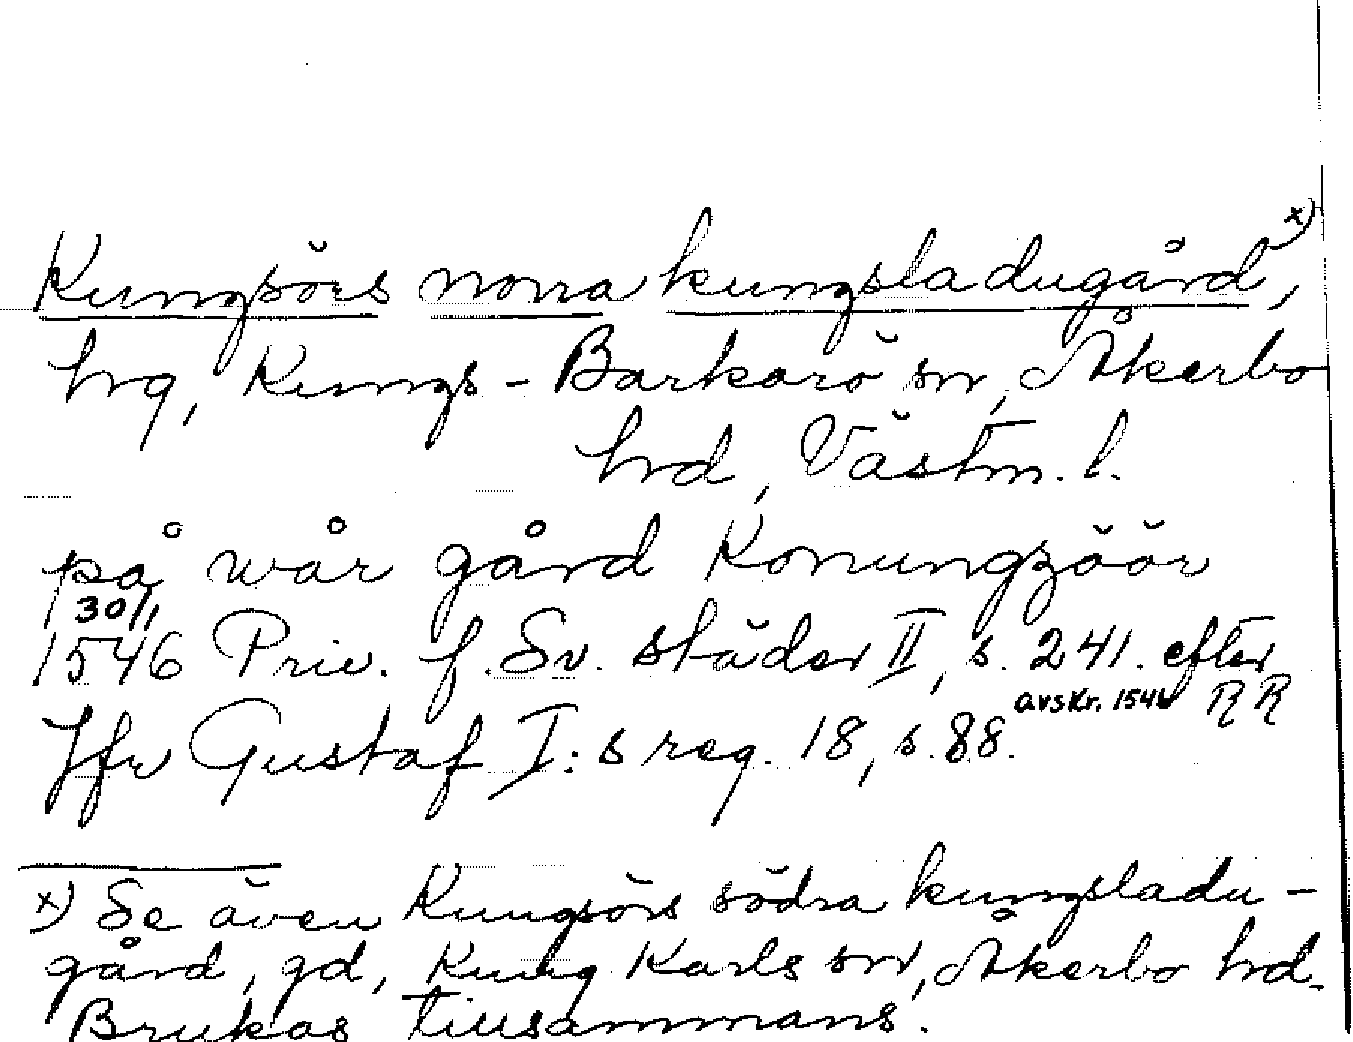 Kungsörs norra kungsladugård, x)
hrg, Kungs-Barkarö sn, Åkerbo
hrd, Västm. l.
på wår gård Konungzöör
30/1
1546 Priv. f. Sv. städer II, s. 241. efter
avskr. 1546 RR
Jfr Gustaf I:s reg. 18, s. 88.
x) Se även Kungsörs södra kungsladu-
gård, gd, Kung Karls sn, Åkerbo hd.
Brukas tillsammans.